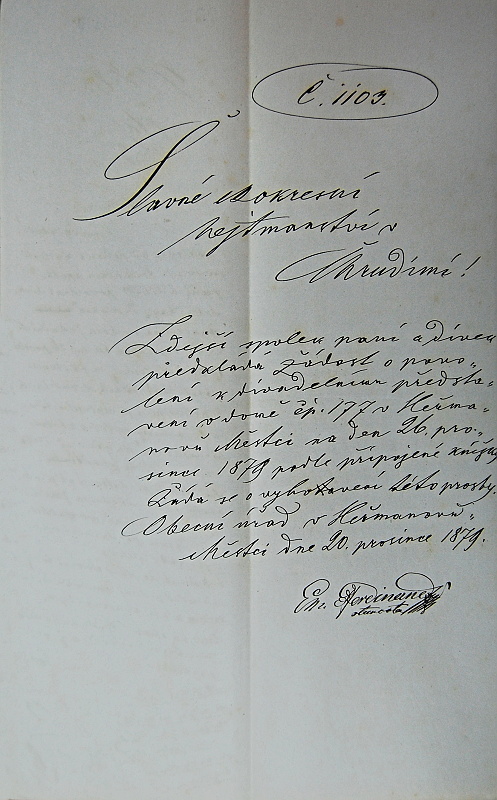 Č. 1103.
Slavné c. k. okresní
hejtmanství v
Chrudimi!
Zdejší spolek paní a dívek
předkládá žádost o povo-
lení k divadelnímu předsta-
vení v domě čp. 177 v Heřma-
nově Městci na den 26. pro-
since 1879 podle připojené knížky
Žádá se o vybotavení této prosby.
Obecní úřad v Heřmanově
Městci dne 20. prosince 1879.
Ferdinand
starosta